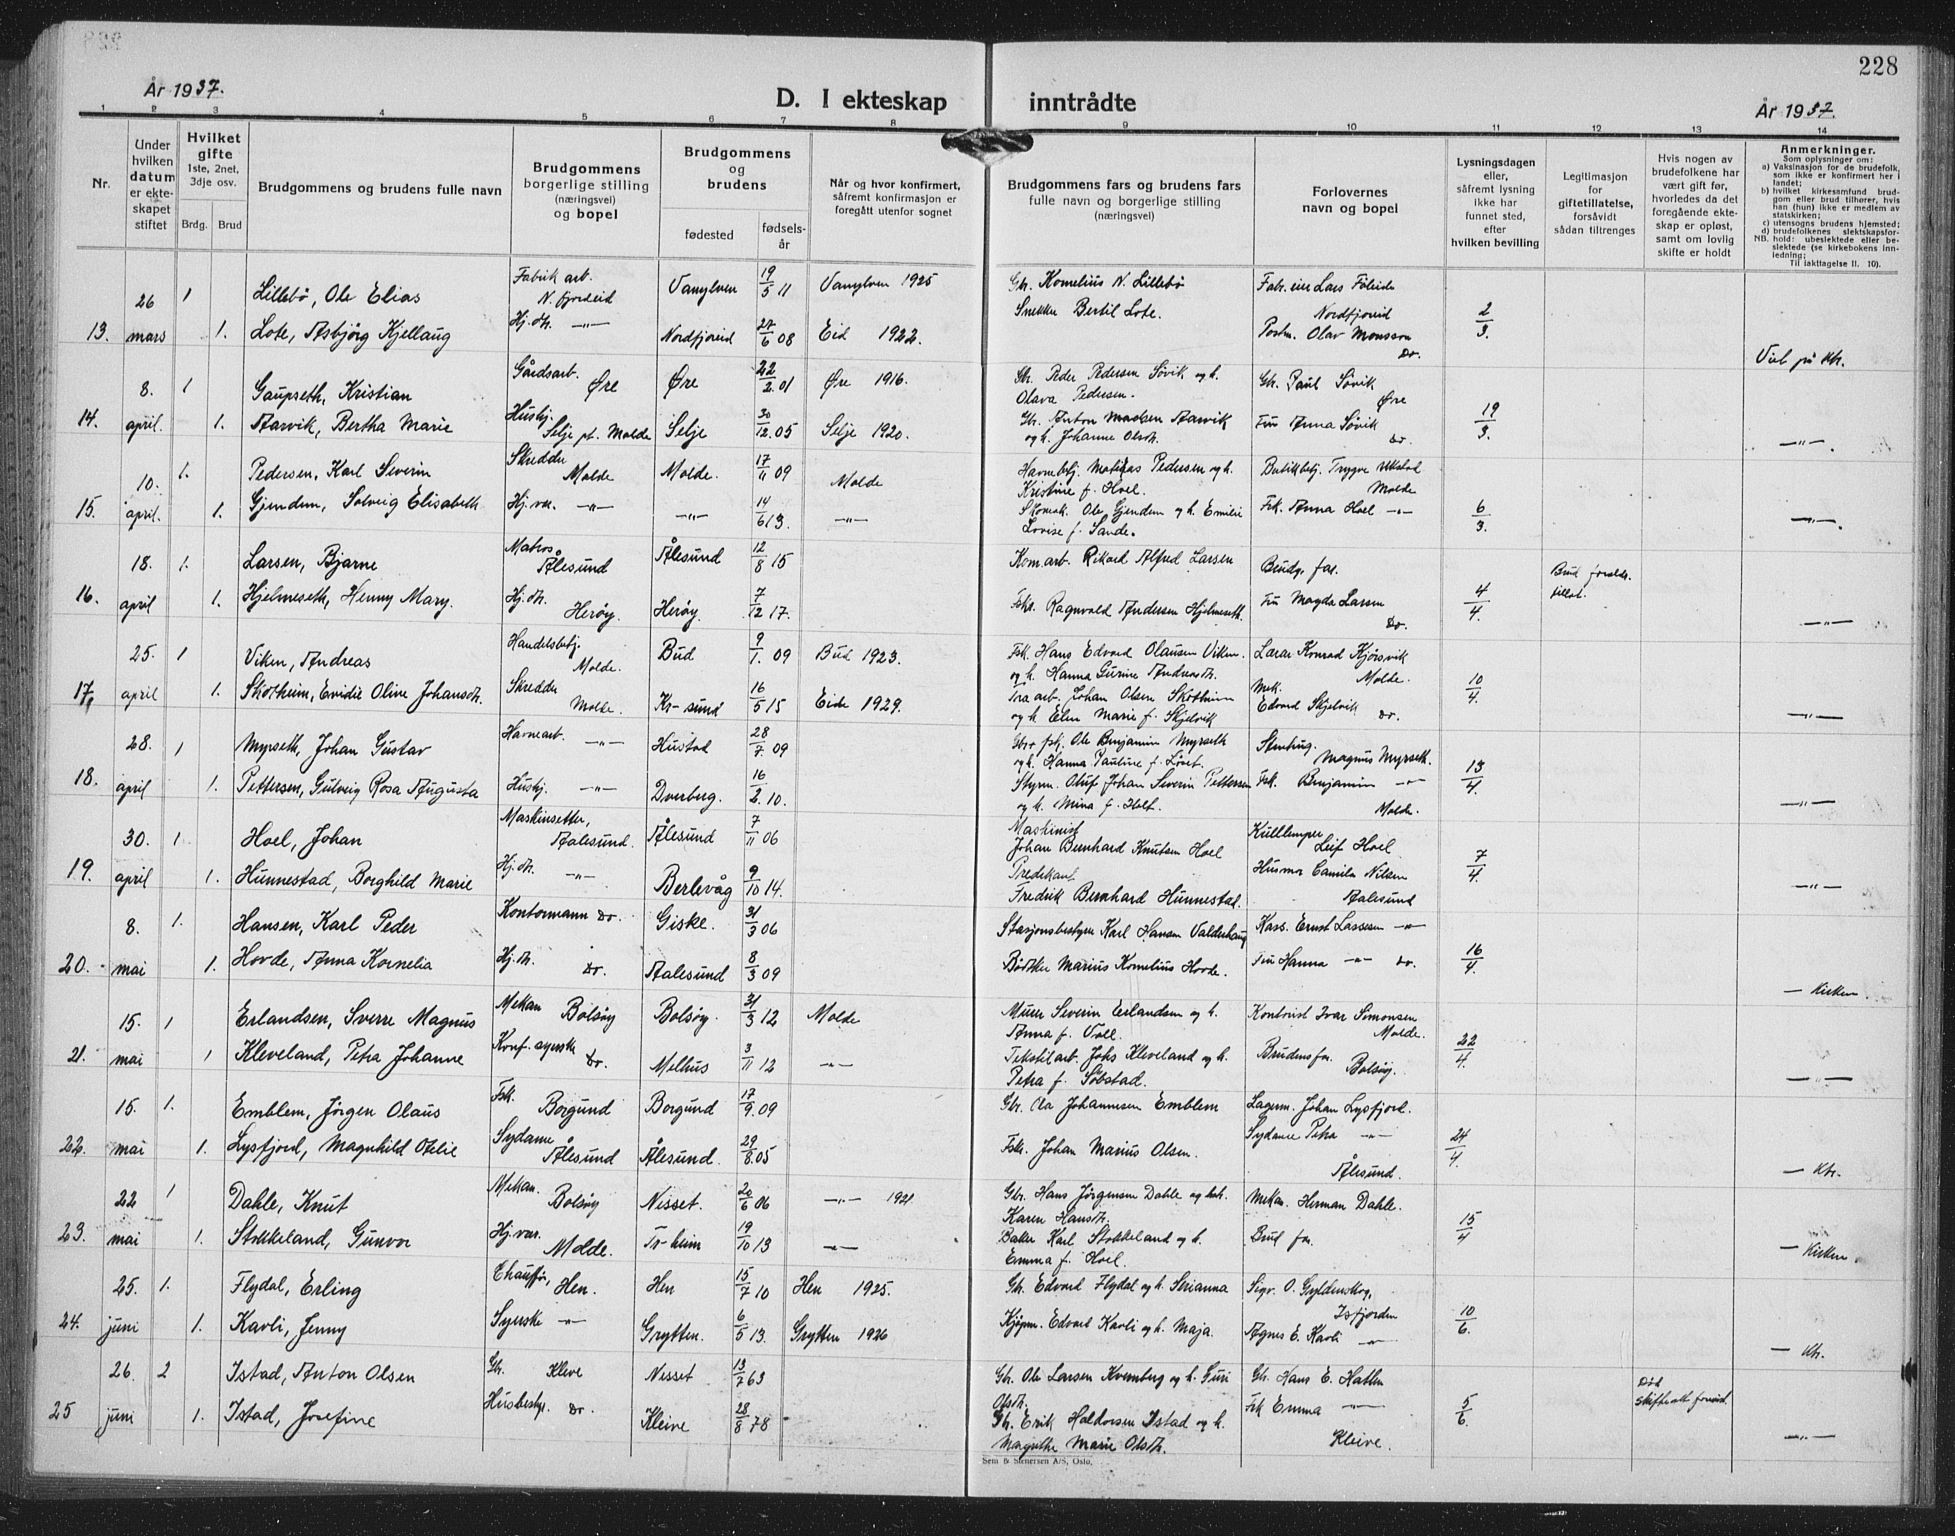 228
År 1937.
D. I ekteskap inntrådte
År 1937.
1 2 3 4 5 6 7 8 9 10 11 12 13 14
Nr.
Under hvilken datum er ekteskapet stiftet
Hvilket gifte 1ste, 2net, 3dje osv.
Brdg. Brud
Brudgommens og brudens fulle navn
Brudgommens borgerlige stilling (næringsvei) og bopel
Brudgommens og brudens
fødested
fødselsår
Når og hvor konfirmert, såfremt konfirmasjon er foregått utenfor sognet
Brudgommens fars og brudens fars fulle navn og borgerlige stilling (næringsvei)
Forlovernes navn og bopel
Lysningsdagen eller, såfremt lysning ikke har funnet sted, efter hvilken bevilling
Legitimasjon for giftetillatelse, forsåvidt sådan tiltrenges
Hvis nogen av brudefolkene har vært gift før, hvorledes da det foregående ekteskap er opløst, samt om lovlig skifte er holdt
Anmerkninger.
Som oplysninger om:
a) Vaksinasjon for de brudefolk, som ikke er konfirmert her i landet;
b) hvilket kirkesamfund brudgom eller brud tilhører, hvis han (hun) ikke er medlem av statskirken;
c) utensogns brudens hjemsted;
d) brudefolkenes slektskapsforhold: ubeslektede eller beslektede (se kirkebokens innledning;
NB. Til iakttagelse II. 10).
26 1 Lillebö, Ole Elias Fabrik arb. N. fjordeid Vanylven 19/5 11 Vanylven 1925 Gbr. Kornelius N. Lillebö Fabr. eier Lars
Nordfjoreid
13. mars 1. Lote, Asbjörg Kjellaug Hj. dtr. —"— Nordfjoreid 27/6 08 Eid 1922. Snekker Bertil Lote. Postm. Olav Monsson Do. 2/3. Viet på ktr.
8. 1 Gaupseth, Kristian Gårdsarb. Øre Øre 22/2. 01 Øre 1916. Gbr. Peder Pedersen Sövik og h. Olava Pedersen. Gbr. Paul Sövik Øre
14. april. 1. Aarvik, Bertha Marie Hushj. Selje pt. Molde Selje 30/12. 05 Selje 1920. Gbr. Anton Madsen Aarvik og h. Johanne Olsdtr. Fru Anna Sövik do. 19/3. —"—
10. 1. Pedersen, Karl Severin Skredder Molde Molde. 17/11 09 Molde Havnebetj. Matias Pedersen og h. Kristine f. Hoel. Butikkbetj. Trygve Molde
15. april. 1. Gjendem, Solveig Elisabeth Hj. vær. —"— —"— 14/6 13. —"— Skomak. Ole Gjendem og h. Emilie Lovise f. Sande. Frk. Anna Hoel —"— 6/3. —"—.
18. 1. Larsen, Bjarne Matros Ålesund Ålesund 12/8 15 Kom arb. Rikard Alfred Larsen Brudg. far. Brud foreldr. tillat.
16. april 1. Hjelmeseth, Henny Mary. Hj. dtr. Herøy. Herøy 7/12 17. Fsk. Ragnvald Andersen Hjelmeseth. Fru Magda Larsen Do. 4/4. —"—
25. 1 Viken, Andreas Handelsbetj. Molde. Bud 9/1. 09 Bud 1923. Fsk. Hans Edvard Olausen Viken. og h. Hanna Gurine Andreasdtr. Lærer Konrad Kjörsvik Molde.
17. april 1. Skötheim, Evidie Oline Johansdtr. Skredder Molde. Kr-sund 16/5 15 Eide 1929. arb. Johan Olsen Skötheim og h. Elen Marie f. Skjelvik Mek. Edvard Skjelvik Do. 10/4. —"—
28. 1 Myrseth, Johan Gustav Havnearb. —"— Hustad 28/7. 09 Gbr. fsk. Ole Benjamin Myrseth og h. Hanna Pauline f. Magnus Myrseth.
18. april 1. Pettersen, Gulveig Rosa Augusta Hushj. —"— Dverberg. 16/2. 10. Styrm. Oluf Johan Severin Pettersen og h. Mina f. Holt. Fsk. Benjamin —"— Molde. 13/4. —"—
30. 1. Hoel, Johan Maskinsetter, Aalesund. Ålesund 7/11 06 Maskinist Johan Bernhard Knutsen Hoel Kulllemper Leif Hoel
19. april 1. Hunnestad, Borghild Marie Hj. dtr. —"— Berlevåg 9/10 14. Predikant Fredrik Bernhard Hunnestad. Husmor Camilla Nilsen Aalesund 7/4. —"—
8. 1. Hansen, Karl Peder Kontormann Do. Giske. 31/3 06 Stasjonsbestyrer Karl Hansen Valderhaug Kass. Ernst Lassesen —"—
20. mai 1. Hovde, Anna Kornelia Hj. dtr. Do. Aalesund 8/3 09 Bødtker Marius Kornelius Hovde. Fru Hanna —"— Do. 16/4. — Kirken
15. 1 Erlandsen, Sverre Magnus Mekan Bolsöy Bolsöy. 31/3 12 Molde Murer Severin Erlandsen og h. Anna f. Voll. Kontorist Ivar Simonsen Molde.
21. mai 1 Kleveland, Petra Johanne Konf. syerske Do. Melhus 3/11 12 —"— Tekstilarb. Johs Kleveland og h. Petra f. Söbstad. Brudens far. Bolsöy. 22/4. —"—
15. 1. Emblem, Jörgen Olaus Fsk. Borgund Borgund 17/9. 09 Gbr. Ola Johannesen Emblem Lagerm. Johan Lysfjord.
22. mai 1. Lysfjord, Magnhild Otelie Sydame Ålesund Ålesund. 29/8. 05 Fsk. Johan Marius Olsen. Sydame Petra —"— Ålesund. 24/4. — Ktr.
22 1 Dahle, Knut Mekan. Bolsöy Nesset. 20/6 06 —"— 1921 Gbr. Hans Jörgensen Dahle og h. Karen Hansdtr. Mekan. Herman Dahle.
23. mai 1. Stokkeland, Gunvor Hj. vær. Molde. Tr-heim 19/10 13 —"— Baker Karl Stokkeland og h. Emma f. Hoel. Brud far. 15/4 — Kirken.
25. 1. Flydal, Erling Chauffør, Hen. Hen 15/7 10 Hen 1925. Gbr. Edvard Flydal og h. Serianna Sigv. O. Gyldenskog, Isfjorden
24. juni 1. Kavli, Jenny Syerske —"— Grytten. 6/5 13. Grytten 1926 Kjøpm. Edvard Kavli og h. Maja. Agnes E. Kavli —"— 10/6. — Ktr.
26. 2 Istad, Anton Olsen Gbr. Kleve Nesset 13/7 63 Gbr. Ole Larsen Kvernberg og h. Guri Olsdtr. Gbr. Hans E. Hatlen Død
25 juni 1. Istad, Josefine Husbestyr. Do. Kleive 28/8 78 Gbr. Erik Haldorsen Istad og h. Magnhe Marie Olsdtr. Frk Emma —"— Kleive. 5/6. —"—
Sem & Stenersen A/S, Oslo.